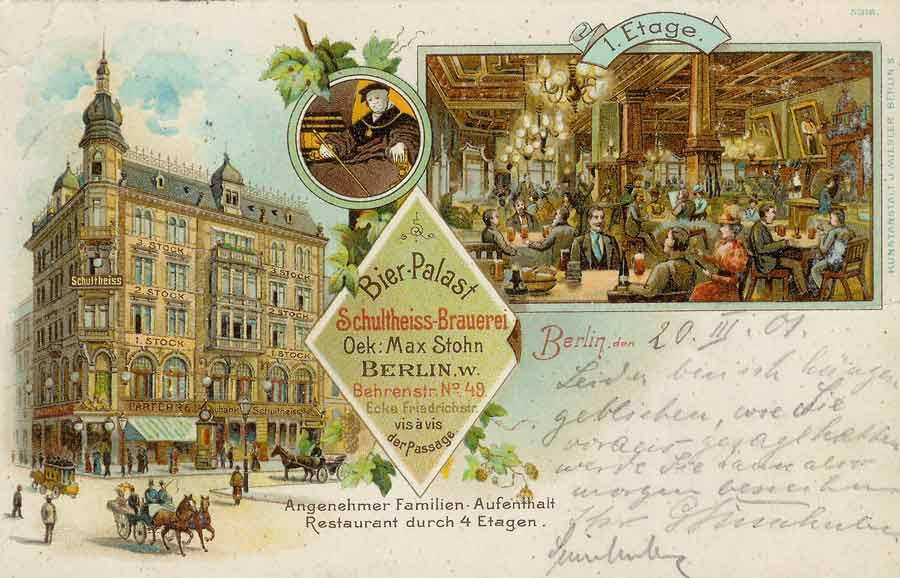 5318.
1. Etage.
KUNSTANSTALT J. MIESLER, BERLIN S.
3 STOCK
3 STOCK
Schultheiss
2 STOCK
2 STOCK
1. STOCK
1 STOCK
PARTERRE
Schultheiss
Bier-Palast
Schultheiss-Brauerei
Oek: Max Stohn
BERLIN.W.
Behrenstr. No 49.
Ecke Friedrichstr.
vis à vis
der Passage
Angenehmer Familien-Aufenthalt
Restaurant durch 4 Etagen.
Berlin, den 20. III. 01.
Leider bin ich hängen
geblieben, wie Sie
gesagt hatten
werde Sie dann also
morgen
Ihr